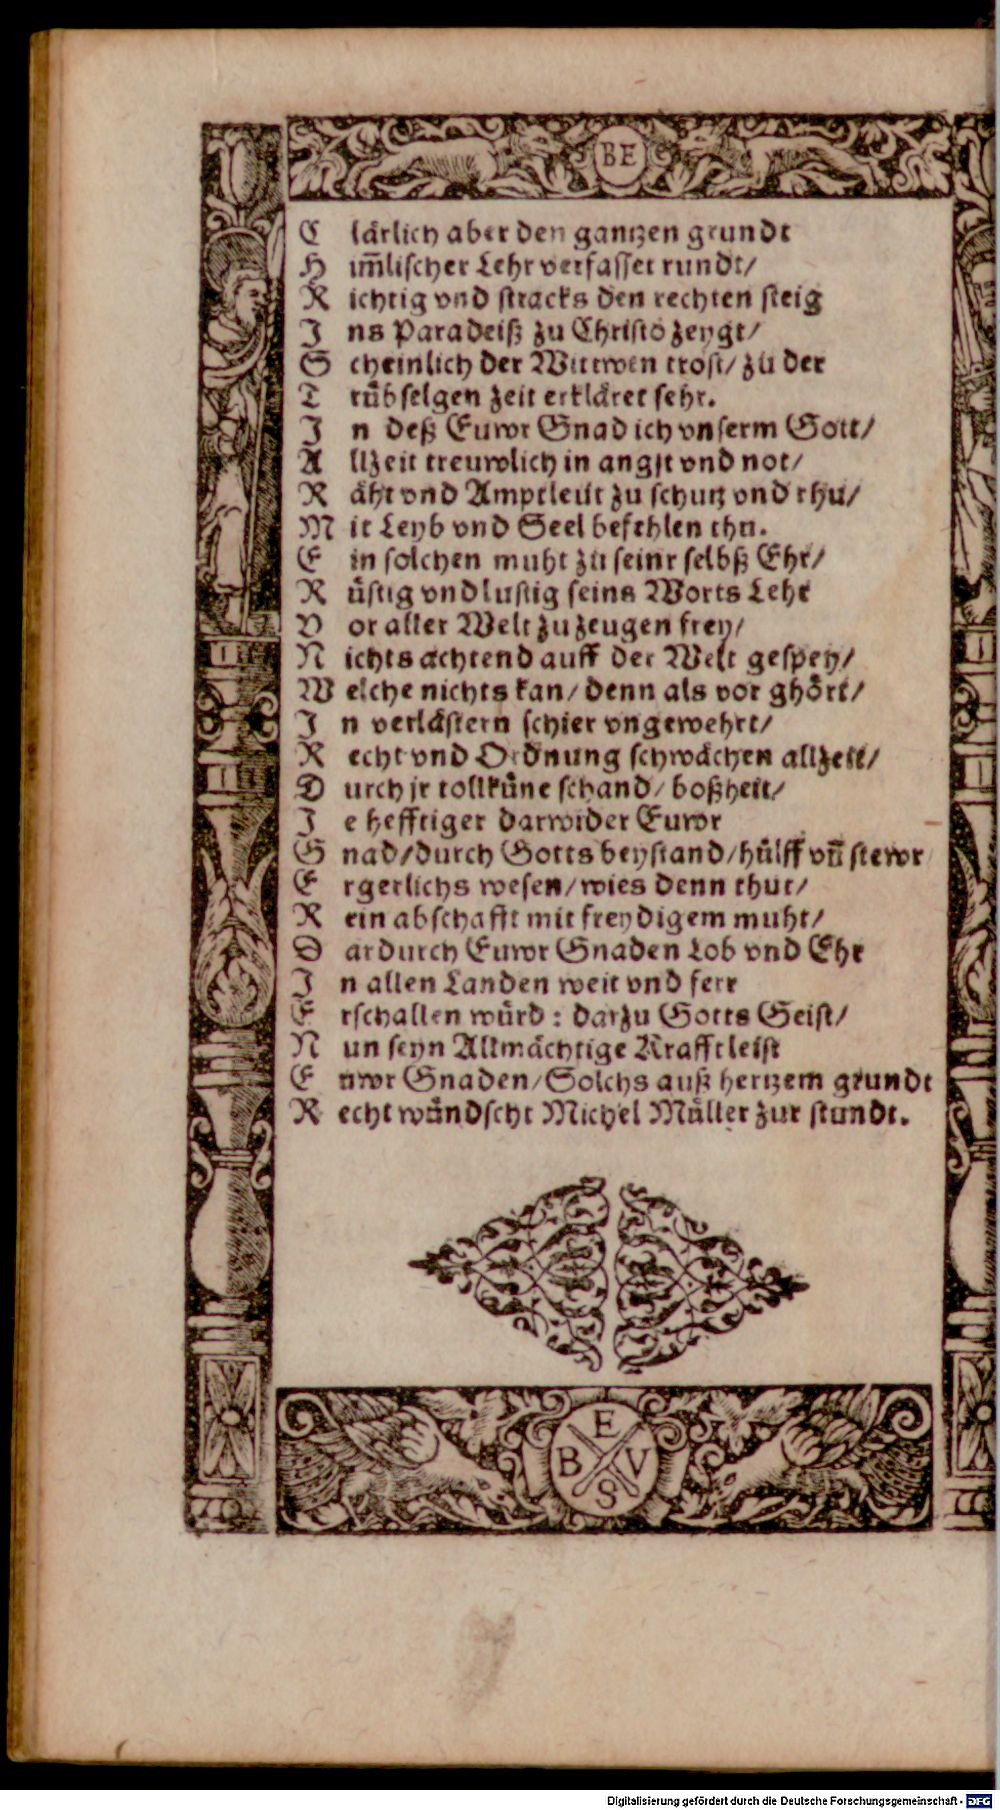 BE
C lärlich aber den gantzen grundt
H im̃lischer Lehr verfasset rundt/
R ichtig vnd stracks den rechten steig
J ns Paradeiß zu Christo zeygt/
S cheinlich der Wittwen trost/ zu der
T rübselgen zeit erkläret sehr.
J n deß Euwr Gnad ich vnserm Gott/
A llzeit treuwlich in angst vnd not/
R äht vnd Amptleut zu schutz vnd rhu/
M it Leyb vnd Seel befehlen thu.
E in solchen muht zu seinr selbß Ehr/
R üstig vnd lustig seins Worts Lehr
V or aller Welt zu zeugen frey/
N ichts achtend auff der Welt gespey/
W elche nichts kan/ denn als vor ghört/
J n verlästern schier vngewehrt/
R echt vnd Ordnung schwächen allzeit/
D urch jr tollküne schand/ boßheit/
J e hefftiger darwider Euwr
G nad/durch Gotts beystand/hülff vñ stewr
E rgerlichs wesen/wies denn thut/
R ein abschafft mit freydigem muht/
D ardurch Euwr Gnaden Lob vnd Ehr
J n allen Landen weit vnd ferr
E rschallen würd: darzu Gotts Geist/
N un seyn Allmächtige Krafft leist
E uwr Gnaden/Solchs auß hertzem grundt
R echt wündscht Michel Müller zur stundt.
E
B V
S
Digitalisierung gefördert durch die Deutsche Forschungsgemeinschaft - DFG